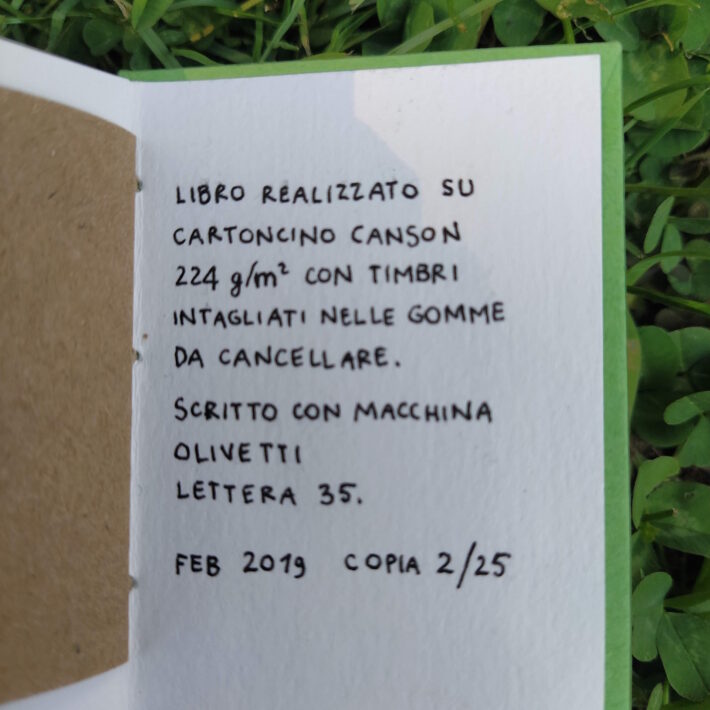 LIBRO REALIZZATO SU
CARTONCINO CANSON
224 g/m² CON TIMBRI
INTAGLIATI NELLE GOMME
DA CANCELLARE.
SCRITTO CON MACCHINA
OLIVETTI
LETTERA 35.
FEB 2019 COPIA 2/25